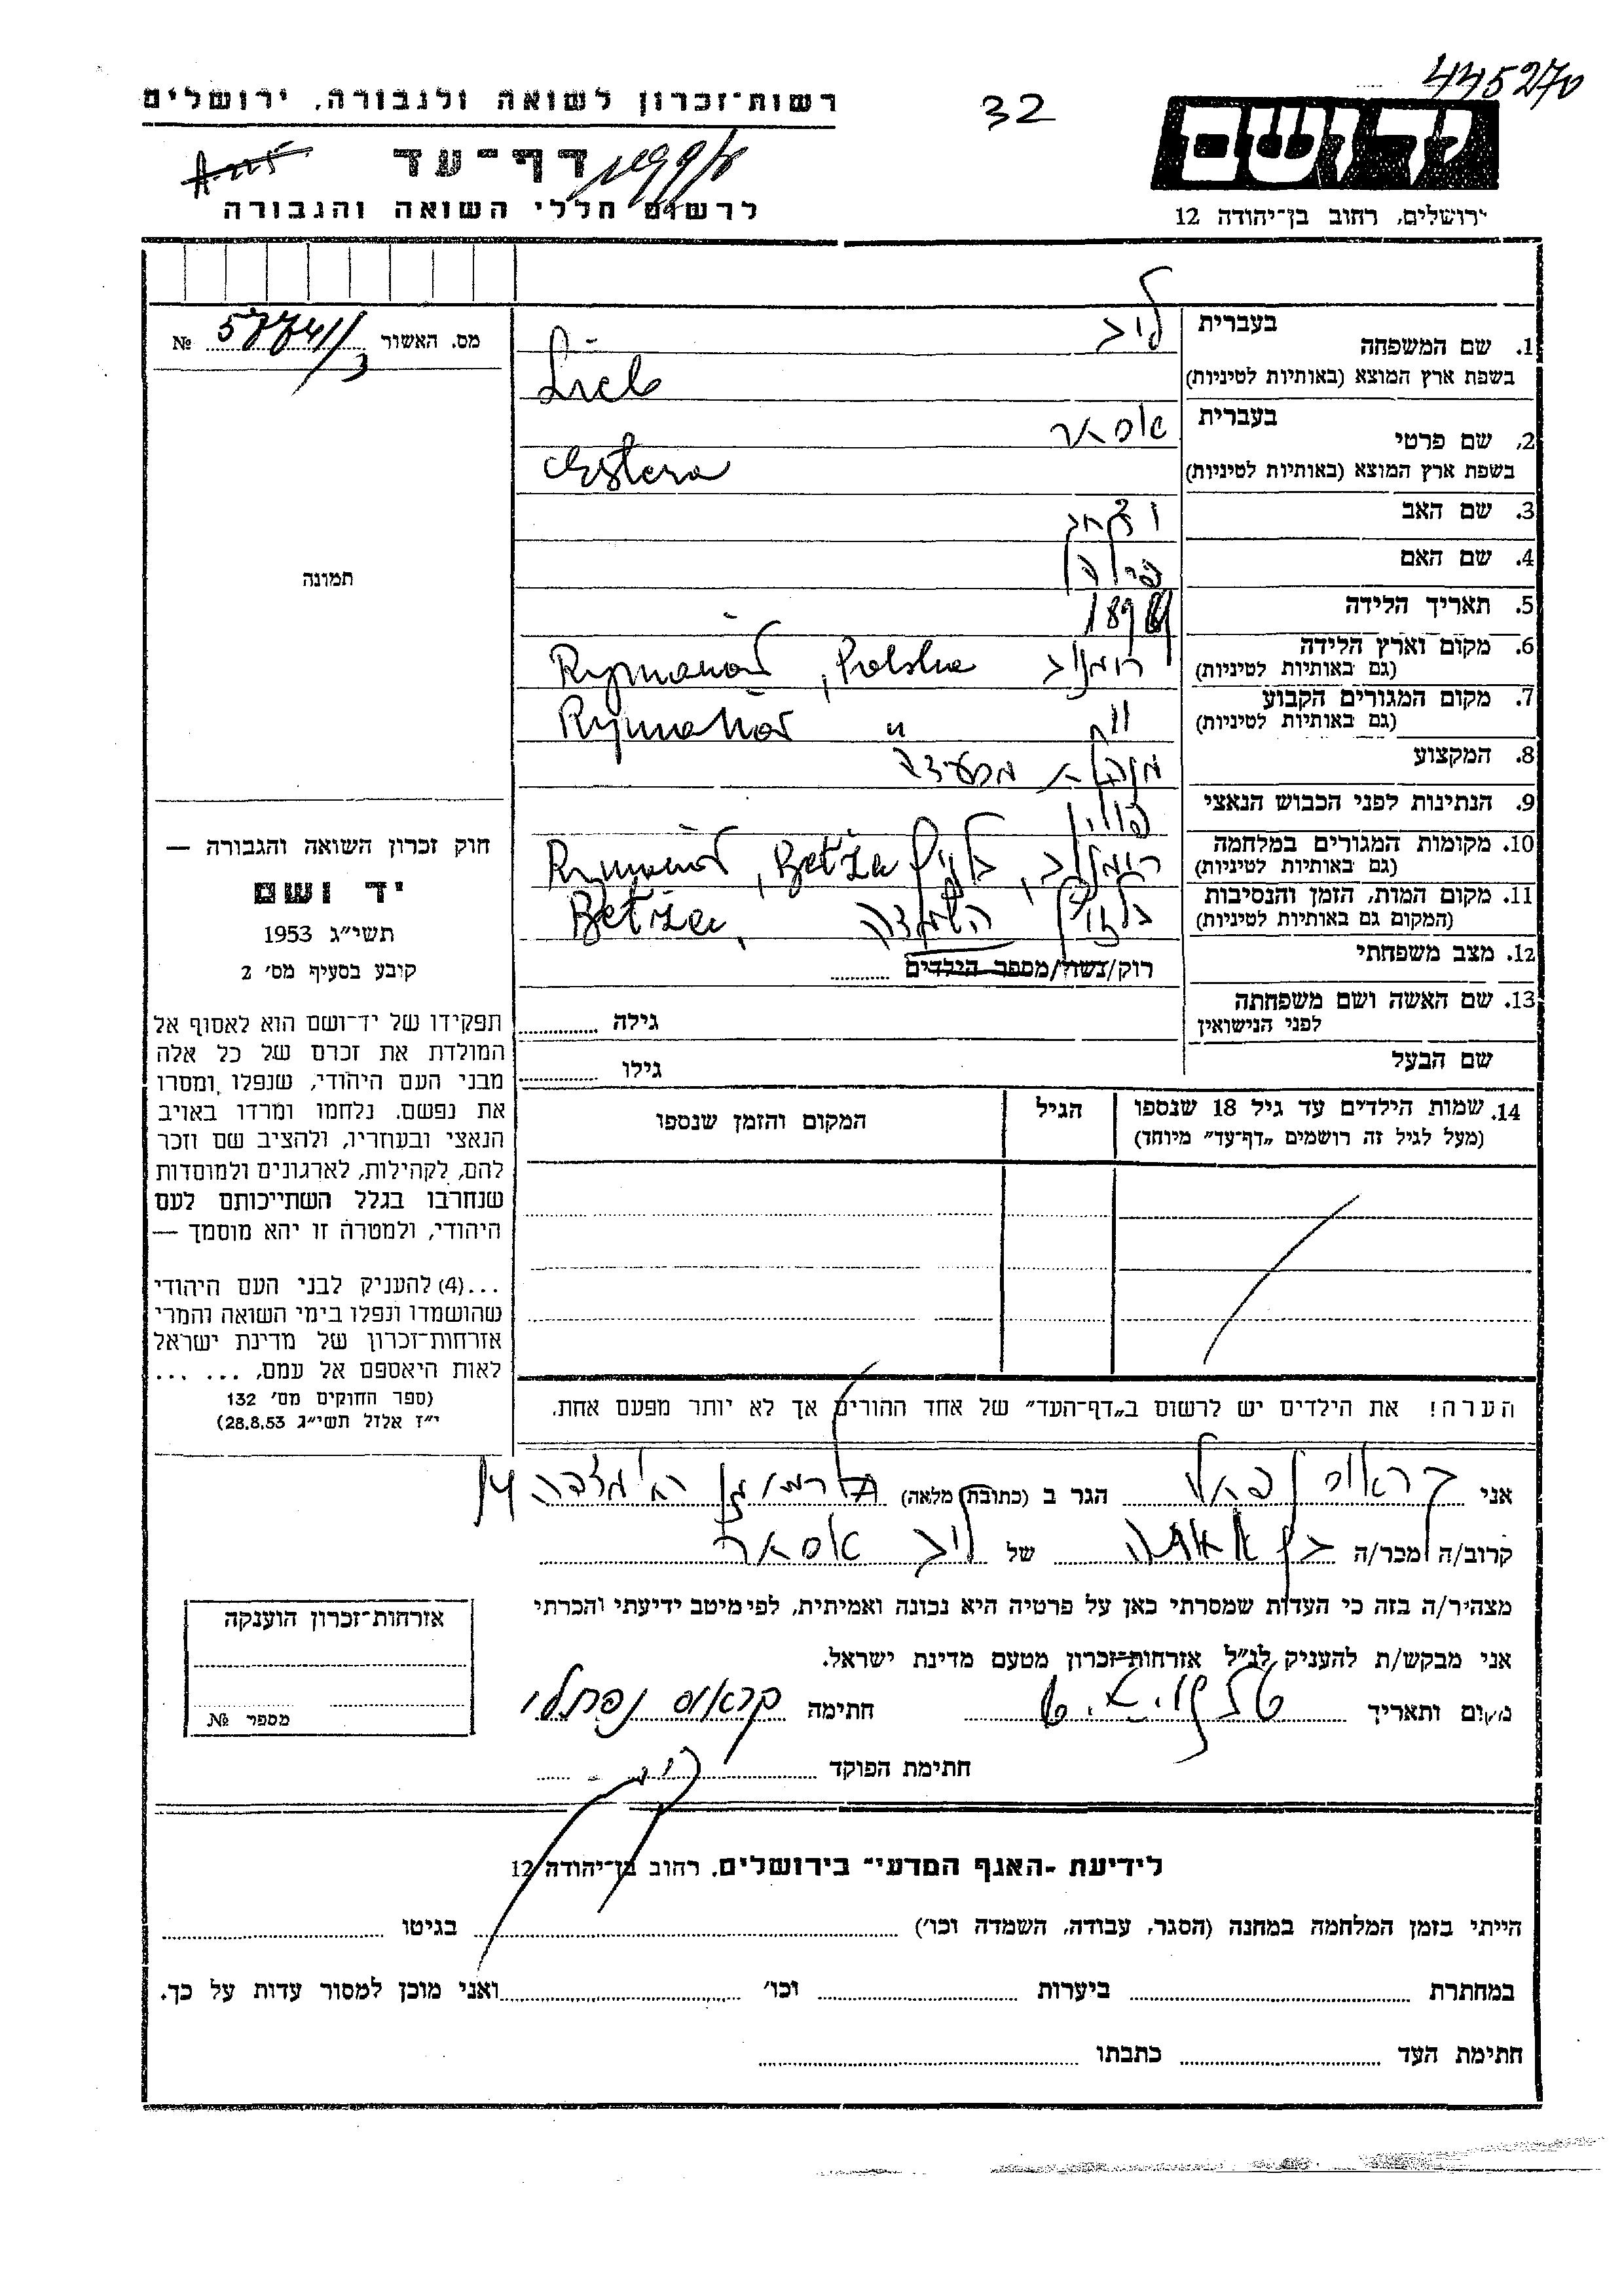 445270
32
רשות-זכרון לשואה ולגבורה, ירושלים
יד ושם
דף-עד
לרשום חללי השואה והגבורה
ירושלים, רחוב בן-יהודה 12
מס. האשור № 577411/3
1. שם המשפחה
בעברית ליב
בשפת ארץ המוצא (באותיות לטיניות)
2. שם פרטי
בעברית אסתר
בשפת ארץ המוצא (באותיות לטיניות) Estera
3. שם האב יצחק
4. שם האם
5. תאריך הלידה
6. מקום וארץ הלידה
(גם באותיות לטיניות) רימנוב Rymanów, Polska
7. מקום המגורים הקבוע
(גם באותיות לטיניות) " Rymanów "
8. המקצוע מסעדה
9. הנתינות לפני הכבוש הנאצי פולין
10. מקומות המגורים במלחמה
(גם באותיות לטיניות) רימנוב, Rymanów, Betżec
11. מקום המות, הזמן והנסיבות
(המקום גם באותיות לטיניות) השמדה Betżec,
12. מצב משפחתי
רוק/נשוי/מספר הילדים
13. שם האשה ושם משפחתה
לפני הנישואין
גילה
שם הבעל
גילו
14. שמות הילדים עד גיל 18 שנספו
(מעל לגיל זה רושמים „דף-עד" מיוחד)
הגיל
המקום והזמן שנספו
הערה! את הילדים יש לרשום ב„דף-העד" של אחד ההורים אך לא יותר מפעם אחת.
תמונה
חוק זכרון השואה והגבורה —
יד ושם
תשי"ג 1953
קובע בסעיף מס' 2
תפקידו של יד-ושם הוא לאסוף אל
המולדת את זכרם של כל אלה
מבני העם היהודי, שנפלו, ומסרו
את נפשם, נלחמו ומרדו באויב
הנאצי ובעוזריו, ולהציב שם וזכר
להם, לקהילות, לארגונים ולמוסדות
שנחרבו בגלל השתייכותם לעם
היהודי, ולמטרה זו יהא מוסמך —
...(4) להעניק לבני העם היהודי
שהושמדו ונפלו בימי השואה והמרי
אזרחות-זכרון של מדינת ישראל
לאות היאספם אל עמם, ... ...
(ספר החוקים מס' 132
י"ז אלול תשי"ג 28.8.53)
אני קראוס נפתלי הגר ב (כתובת מלאה)
קרוב/ה מכר/ה של ליב אסתר
מצהיר/ה בזה כי העדות שמסרתי כאן על פרטיה היא נכונה ואמיתית, לפי מיטב ידיעתי והכרתי
אני מבקש/ת להעניק לנ"ל אזרחות-זכרון מטעם מדינת ישראל.
מקום ותאריך חתימה קראוס נפתלי
חתימת הפוקד
אזרחות-זכרון הוענקה
מספר №
לידיעת -האגף המדעי״ בירושלים, רחוב בן-יהודה 12
הייתי בזמן המלחמה במחנה (הסגר, עבודה, השמדה וכו') בגיטו
במחתרת ביערות וכו' ואני מוכן למסור עדות על כך.
חתימת העד כתבתו